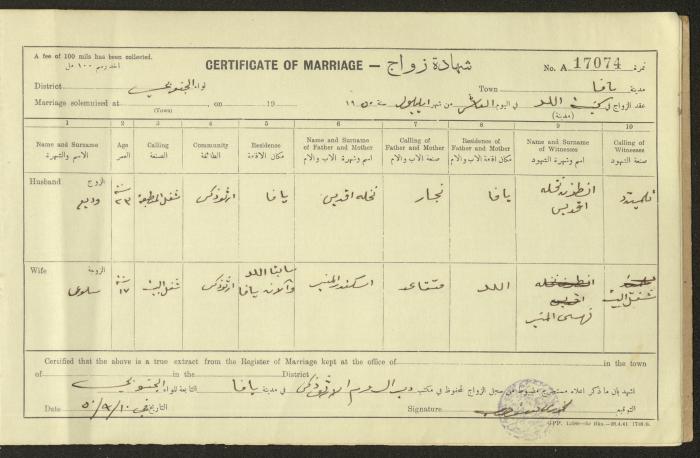 A fee of 100 mils has been collected.
أخذ رسم ١٠٠ مل
CERTIFICATE OF MARRIAGE — شهادة زواج
No. A 17074 نمرة
District لواء الجنوبي
Town مدينة يافا
Marriage solemnised at (Town), on 19
عقد الزواج في كنيسة اللد (مدينة) في اليوم العاشر من شهر ايلول سنة ١٩٥٠
1 2 3 4 5 6 7 8 9 10
Name and Surname Age Calling Community Residence Name and Surname of Father and Mother Calling of Father and Mother Residence of Father and Mother Name and Surname of Witnesses Calling of Witnesses
الاسم والشهرة العمر الصنعة الطائفة مكان الاقامة اسم وشهرة الاب والام صنعة الاب والام مكان اقامة الاب والام اسم وشهرة الشهود صنعة الشهود
Husband الزوج
وديع ٢٣ سنة شغل المطبعة ارثوذكس يافا نخله اقديس نجار يافا انطون نخله اقديس
Wife الزوجة
سلوى ١٧ سنة شغل البيت ارثوذكس سابقا اللد والآن يافا اسكندر المنير متقاعد اللد المنير شغل البيت
Certified that the above is a true extract from the Register of Marriage kept at the office of in the town
of in the District
اشهد بان ما ذكر اعلاه مستخرج مضبوط من سجل الزواج المحفوظ في مكتب الروم الارثوذكس في مدينة يافا التابعة للواء الجنوبي
Date ٥٠/٩/١٠ التاريخ في
Signature التوقيع